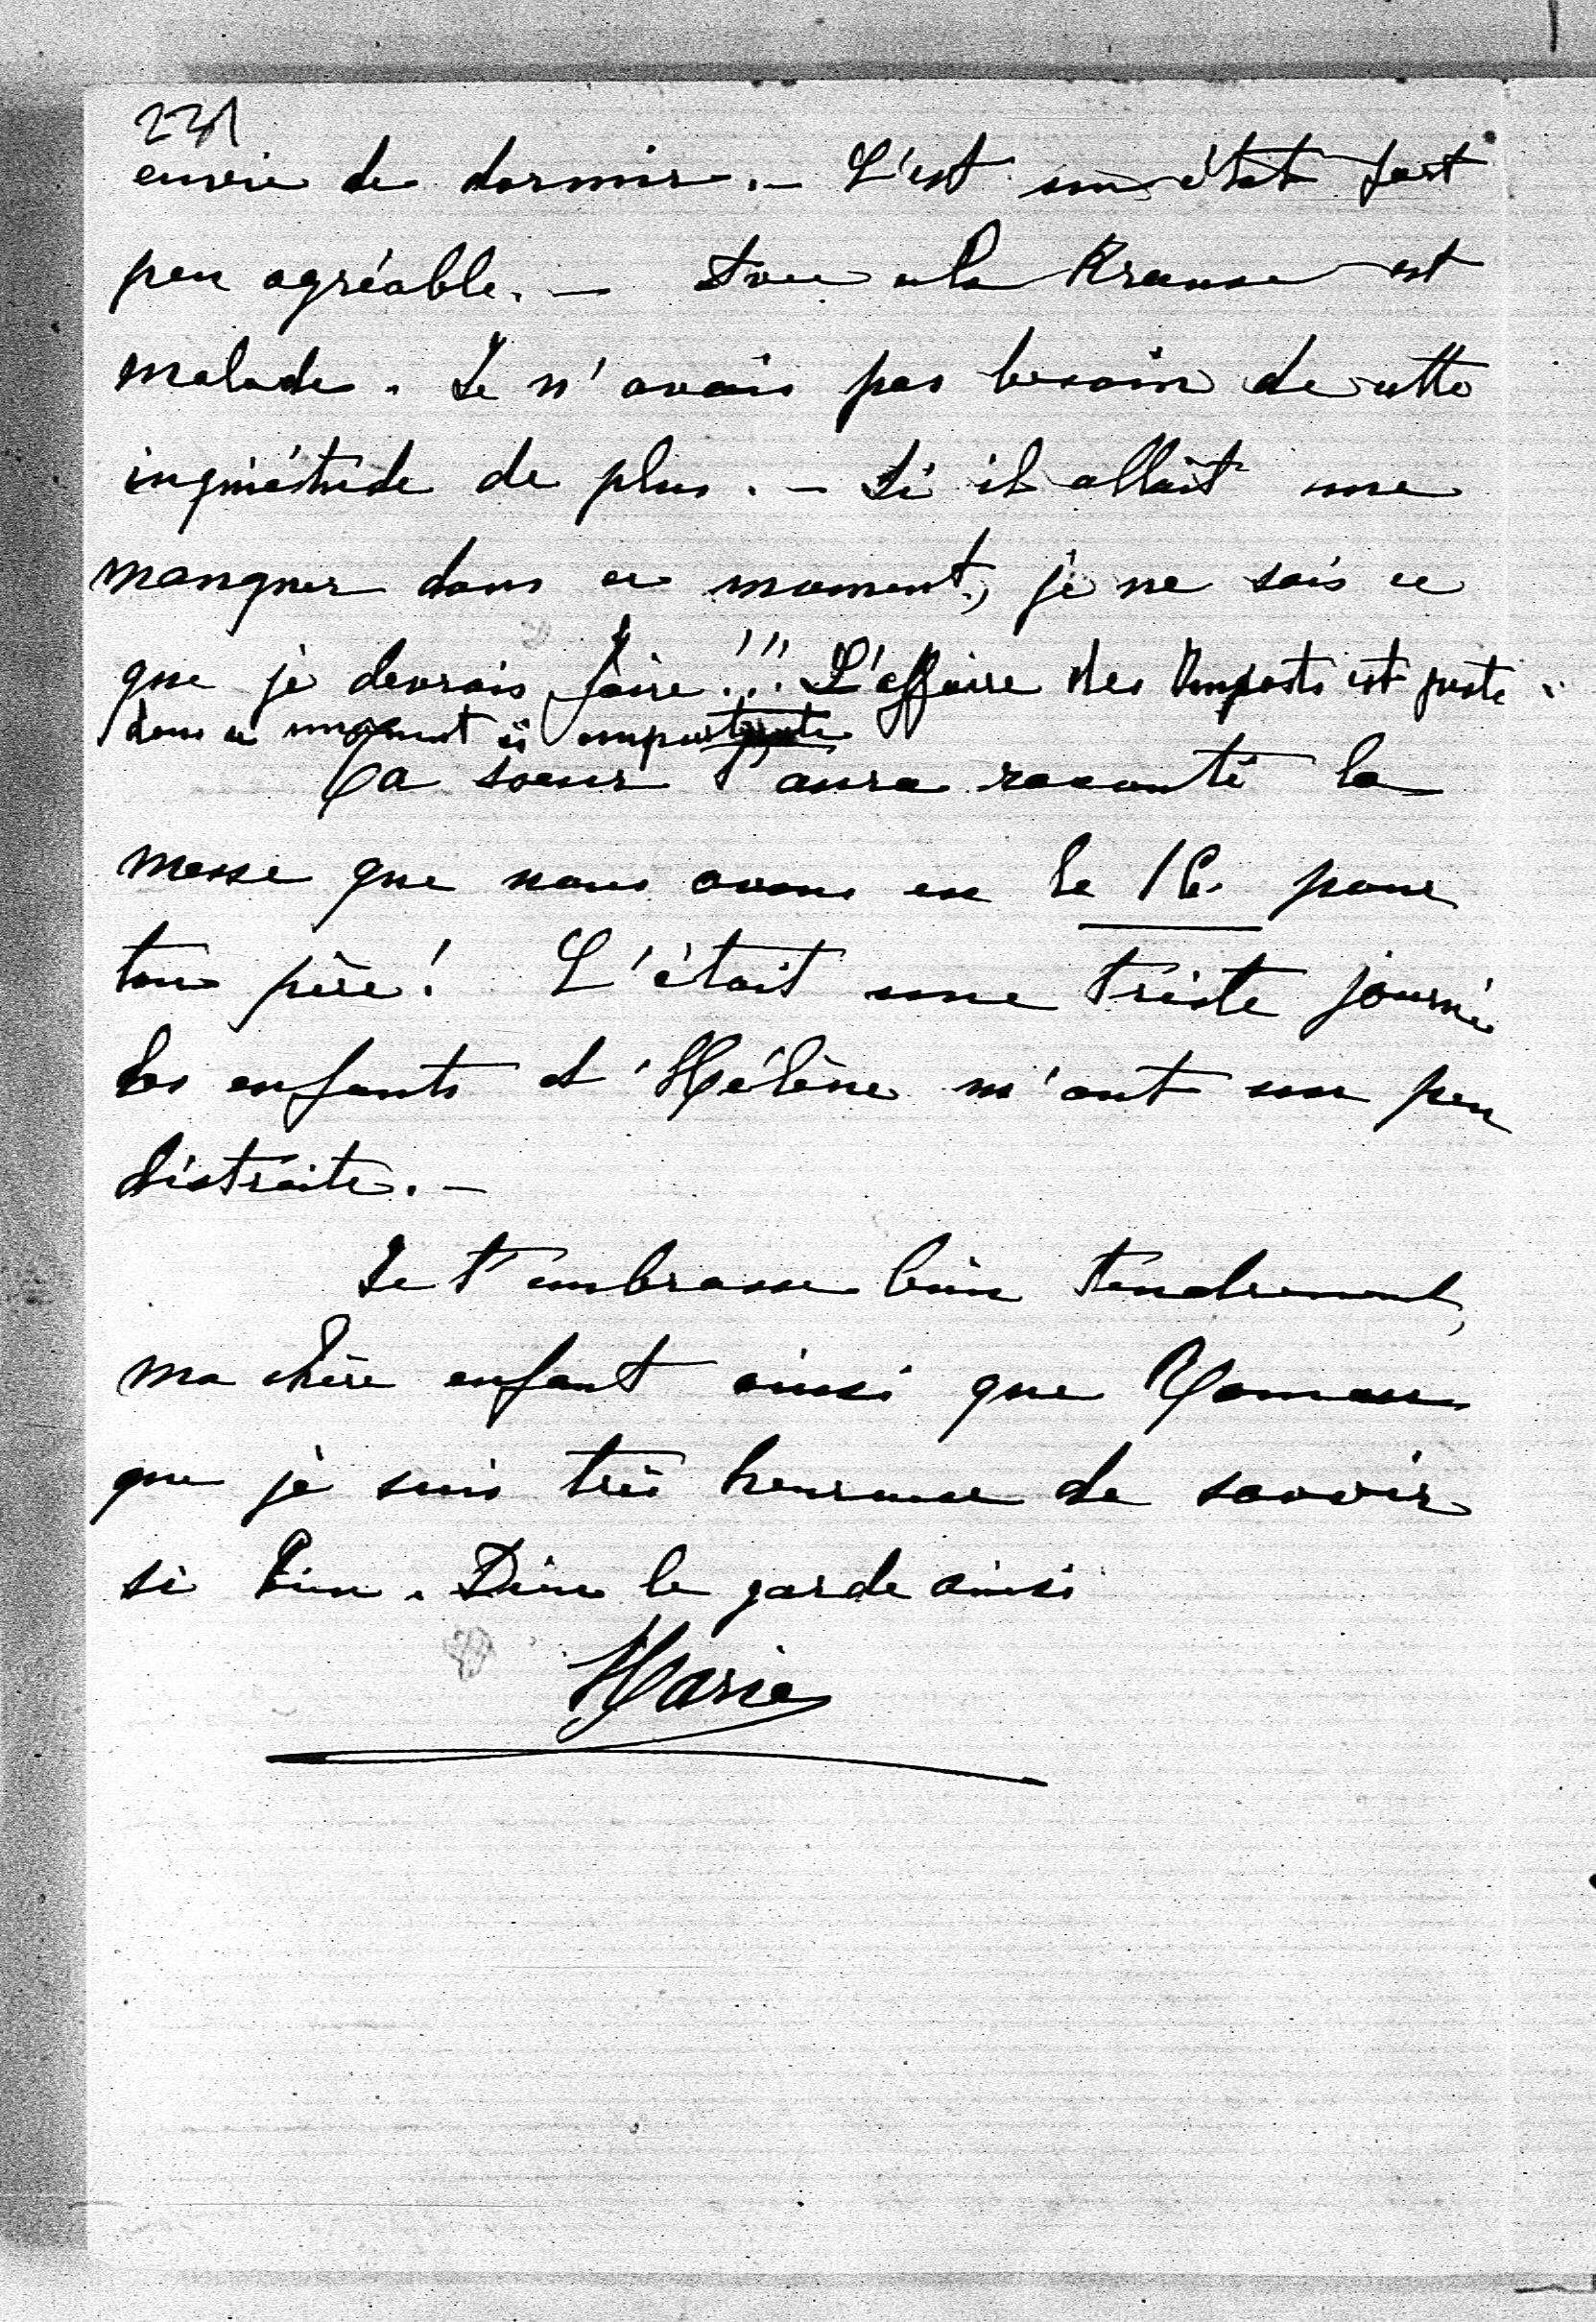 231
envie de dormir. — C'est un état fort
peu agréable. — Avec cela Krause est
malade. Je n'avais pas besoin de cette
inquiétude de plus. — Si il allait me
manquer dans ce moment, je ne sais ce
que je devrais faire!!! L'affaire des Impots est juste
dans ce moment si importante
Ta soeur t'aura raconté la
messe que nous avons eu le 16. pour
ton père! C'était une triste journée
Les enfants d'Hélène m'ont un peu
distraite. —
Je t'embrasse bien tendrement,
ma chère enfant ainsi que Roman
que je suis très heureuse de savoir
si bien. Dieu le garde ainsi
Marie